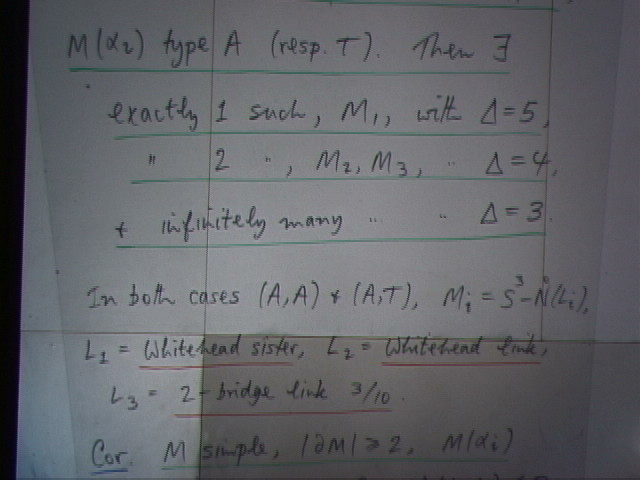 M(α₂) type A (resp. T). Then ∃
exactly 1 such, M₁, with Δ=5,
" 2 ", M₂, M₃, " Δ=4,
+ infinitely many " " Δ=3.
In both cases (A,A) + (A,T), Mᵢ = S³-N̊(Lᵢ),
L₁ = Whitehead sister, L₂ = Whitehead link,
L₃ = 2-bridge link 3/10.
Cor. M simple, |∂M| ⩾ 2, M(αᵢ)